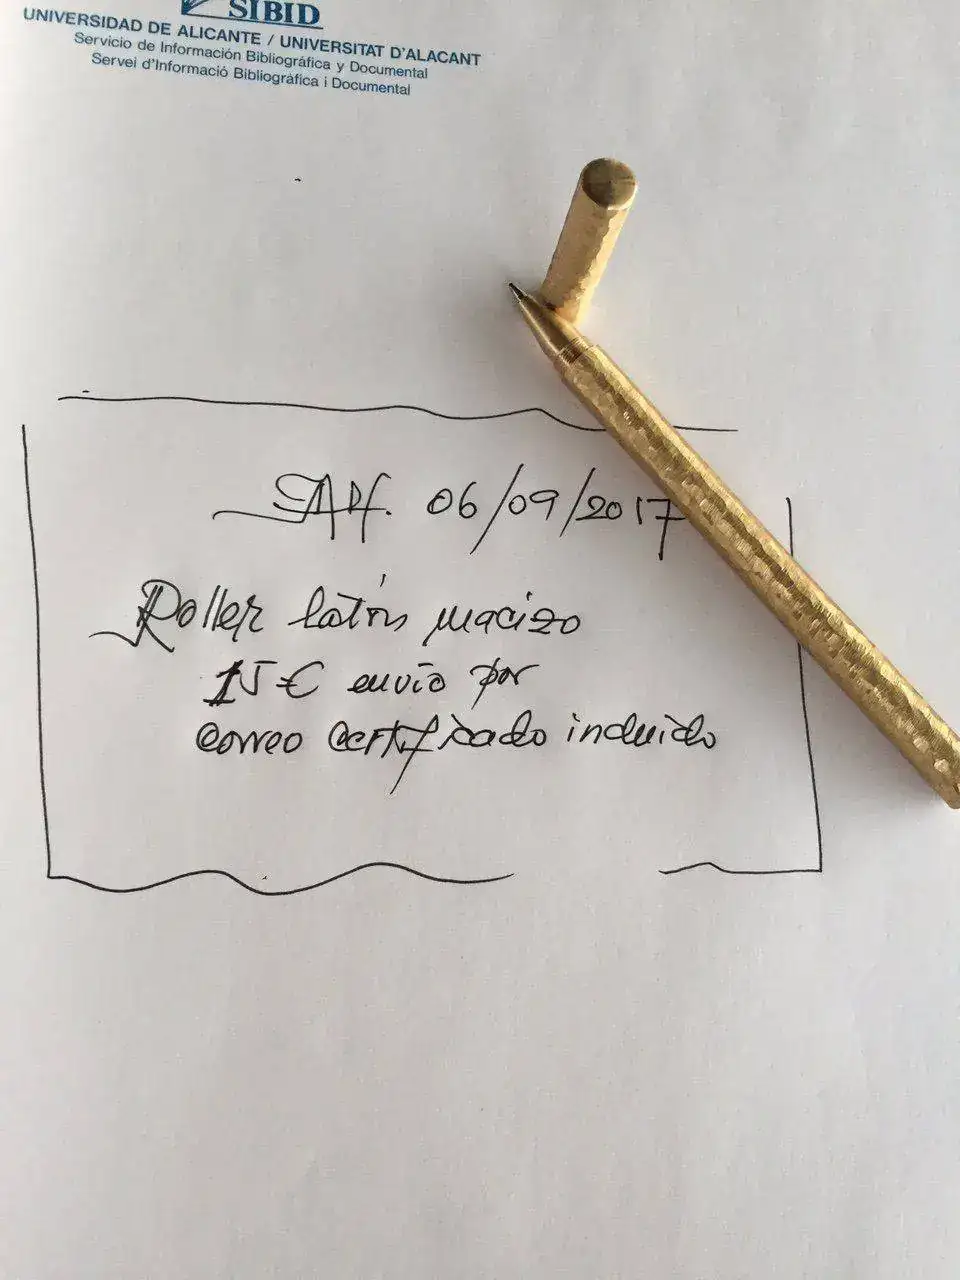 SIBID
UNIVERSIDAD DE ALICANTE / UNIVERSITAT D'ALACANT
Servicio de Información Bibliográfica y Documental
Servei d'Informació Bibliogràfica i Documental
06/09/2017
Roller latón macizo
15€ envío por
correo certificado incluido